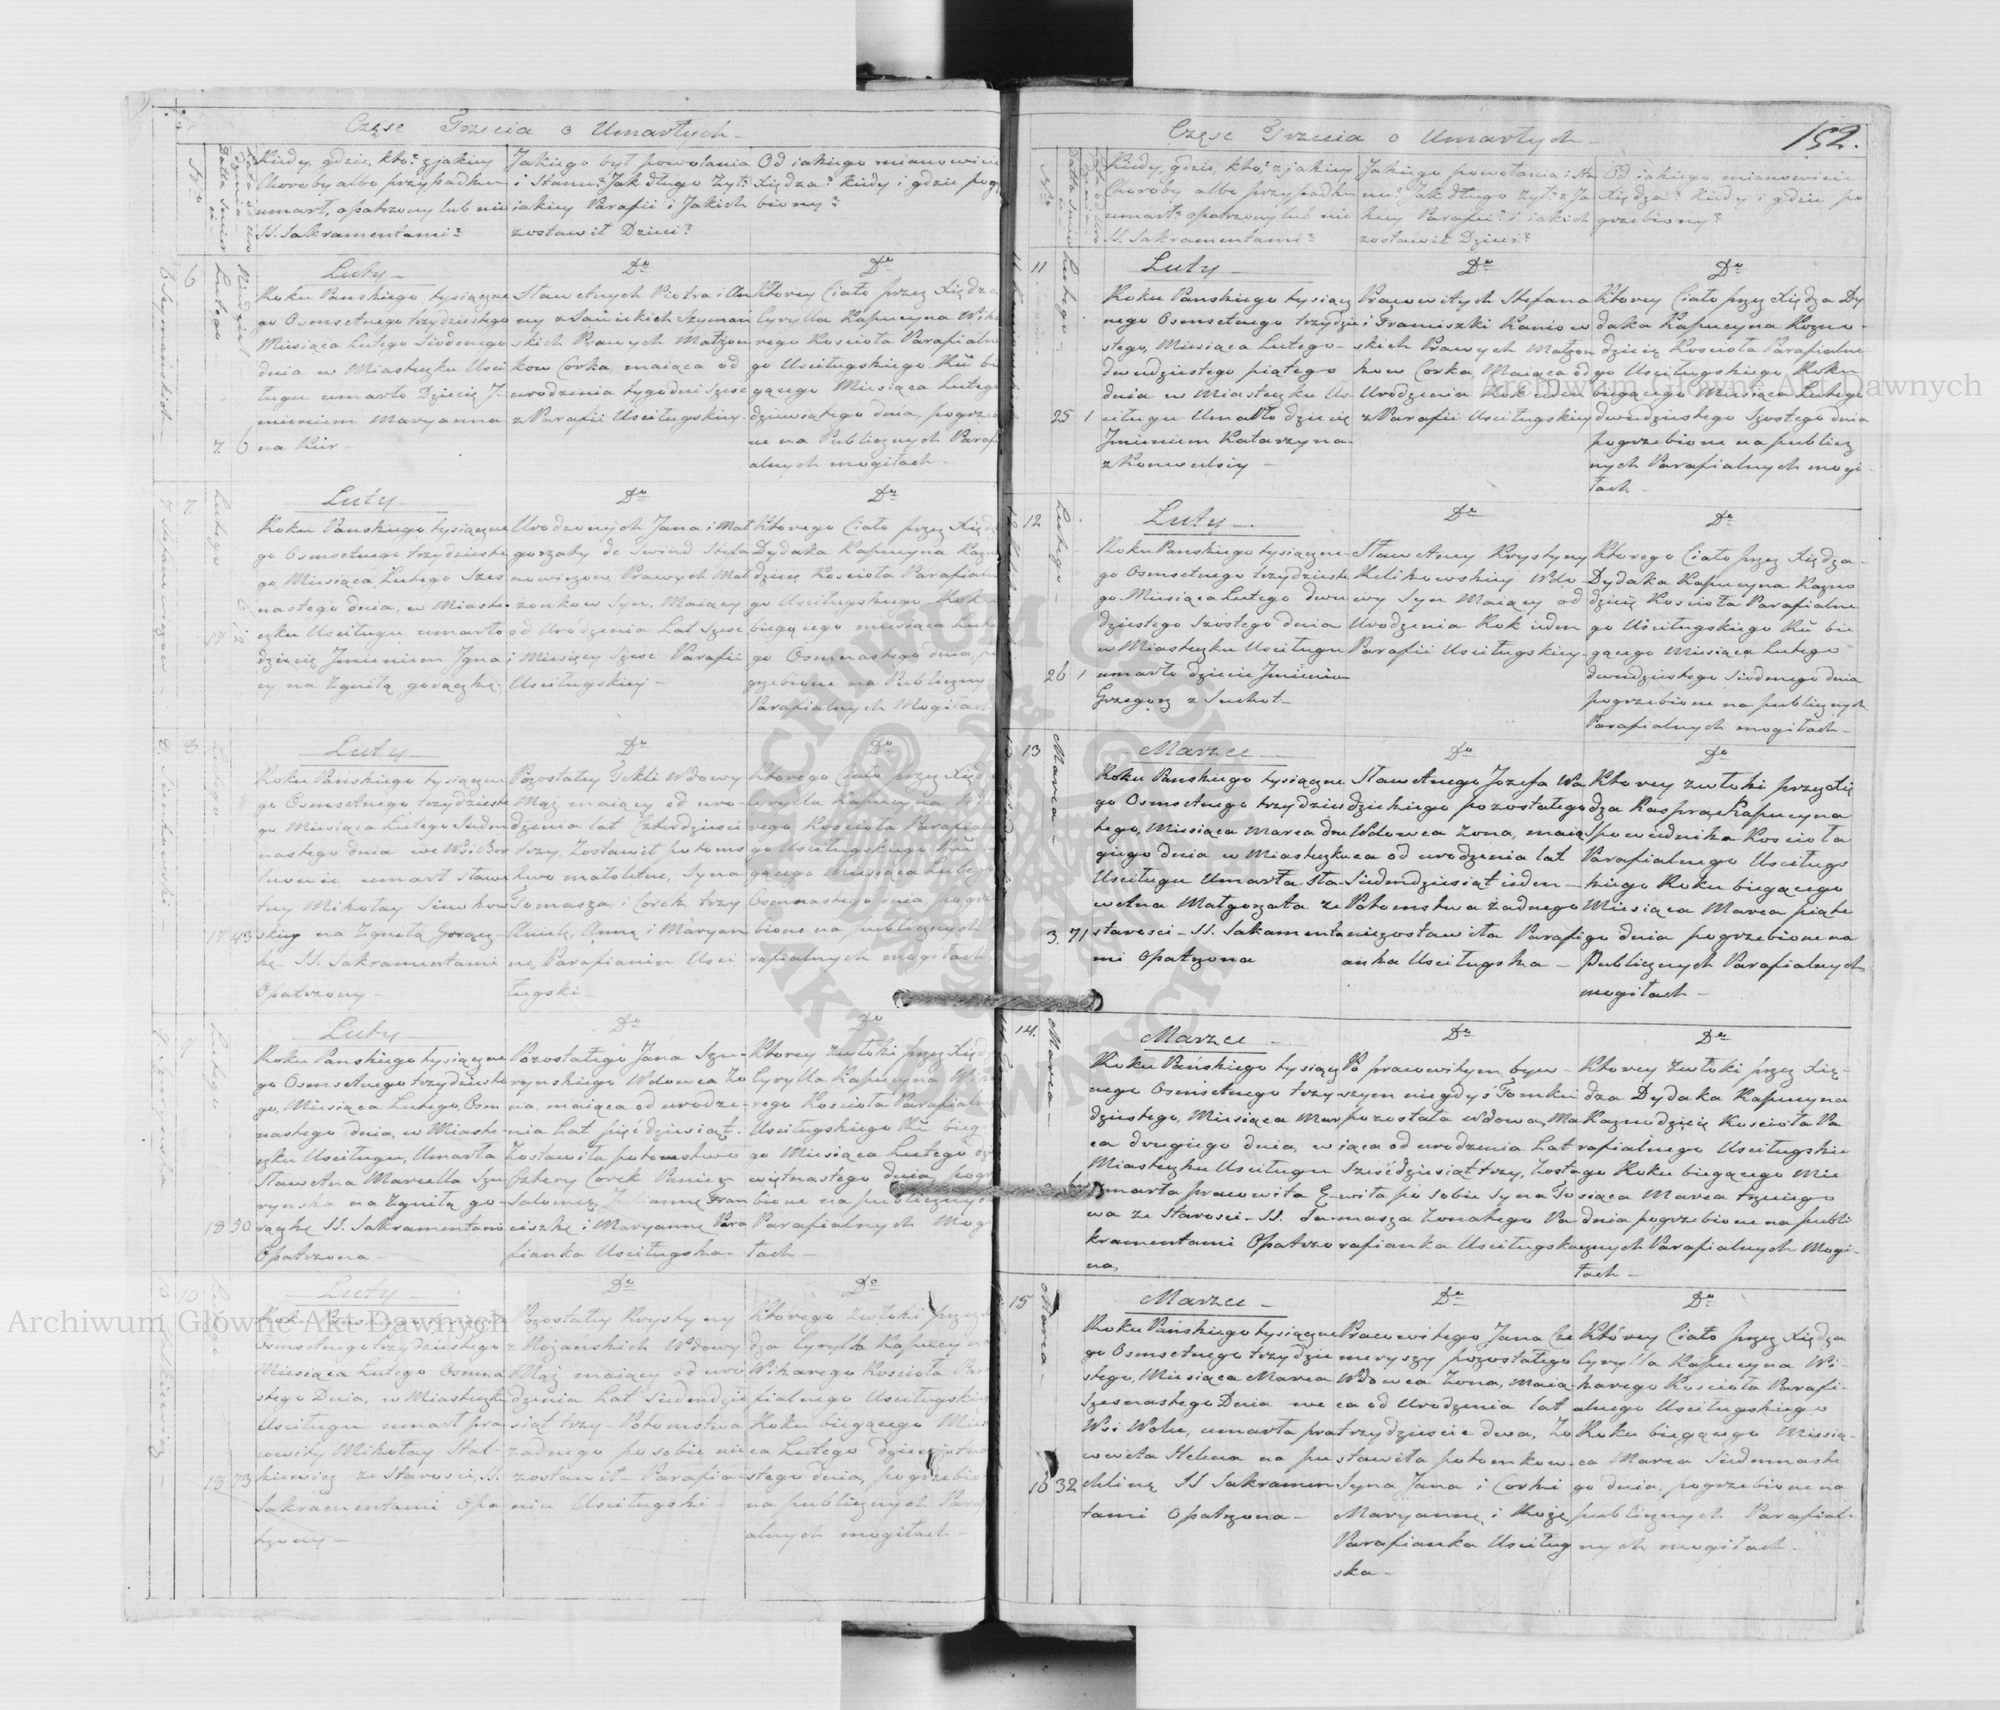 Częsc Trzecia o Umarłych
Kiedy, gdzie, kto? z jakiey
Choroby albo przypadku
umarł, opatrzony lub nie
SS. Sakramentami?
Jakiego był powołania
i Stanu? Jak długo żył?
iakiey Parafii i Jakich
zostawił Dzieci?
Od iakiego mianowicie
Xiędza? kiedy i gdzie pog
biony?
6
Lutego
7
Luty
Roku Panskiego tysiączne
go Osmsetnego trzydziestego
Miesiąca Lutego Siodmego
dnia w Miasteczku Usci
ługu umarło Dziecię J-
mieniem Maryanna
na Kur
Do
Sławetnych Piotra i An
ny z Szyman
skich Prawych Małżon
kow Corka, maiąca od
urodzenia tygodni szesc
z Parafii Usciługskiey
Do
Ktorey Ciało przez Xiędza
Cyrylla Kapucyna Wika
rego Koscioła Parafialne
go Usciługskiego Ru bie
gącego Miesiąca Lutego
dziewiątego dnia, pogrze
ne na Publicznych Parafi
alnych mogiłach
7
Lutego
17
Luty
Roku Panskiego tysiączne
go Osmsetnego trzydzieste
go, Miesiąca Lutego Szes
nastego dnia, w Miaste
czku Usciługu umarło
dziecię Jmieniem Igna
cy na Zgniłą gorączkę
Do
Urodzonych Jana i Mał
gorzaty de Swind Stefa
nowiczow Prawych Mał
żonkow Syn, Maiący
od Urodzenia Lat Szesc
i Miesięcy Szesc Parafii
Usciługskiey
Do
Ktorego Ciało przez Xiędz
Dydaka Kapucyna Kazno
dzieię Koscioła Parafialn
go Usciługskiego Rok
biegącego miesiąca Lute
go Osmnastego dnia, po
grzebione na Publiczny
Parafialnych Mogiłach
8
Lutego
17 43
Luty
Roku Panskiego tysiączne
go Osmsetnego trzydzieste
go, Miesiąca Lutego Siedm
nastego dnia we Wsi
umarł sławe
tny Mikołay Sienkow
skiy na Zgniłą Gorącz-
kę SS. Sakramentami
Opatrzony
Do
Pozostałey Tekli Wdowy
Mąż maiący od uro-
dzenia lat Czterdziesci
trzy, Zostawił potoms
two małoletne, Syna
Tomasza i Corek trzy
Anielę, Annę i Maryan
nę, Parafianin Usci
ługski
Do
Ktorego Ciało przez Xięd
Cyrylla Kapucyna Wika
rego Koscioła Parafialn
go Usciługskiego Ru
gącego Miesiąca Luteg
Osmnastego dnia, pogrze
bione na publicznych
rafialnych mogiłach
9
Lutego
18 50
Luty
Roku Panskiego tysiączne
go Osmsetnego trzydzieste
go, Miesiąca Lutego, Osm
nastego dnia, w Miaste
czku Usciługu, Umarła
Sławetna Marcella Szu
rynska na Zgniłą go-
rączkę SS. Sakramentami
Opatrzona
Do
Pozostałego Jana Szu-
rynskiego Wdowca Żo
na, maiąca od urodze-
nia Lat pięcdziesiąt.
Zostawiła potomstwo
Cztery Corek Panien
Salomeę, Juliannę, Fran
ciszkę i Maryannę Para
fianka Usciługska
Do
Ktorey Zwłoki przez Xięd
Cyrylla Kapucyna Wika
rego Koscioła Parafialn
Usciługskiego Ru bieg
go Miesiąca Lutego dz
więtnastego dnia pogr
bione na publicznych
Parafialnych Mogi
łach
10
18 73
Luty
Roku Panskiego tysiącz
Osmsetnego trzydziestego
Miesiąca Lutego Osmna
stego Dnia, w Miasteczku
Usciługu umarł pra
cowity Mikołay Stal-
kiewicz ze Starosci, SS.
Sakramentami Opa
trzony
Do
Pozostałey Krystyny
z Wdowy
Mąż maiący od uro
dzenia Lat Siedmdzie
siąt trzy Potomstwa
żadnego po sobie nie
zostawił Parafia
nin Usciługski
Do
Ktorego Zwłoki przez
dza Cyrylla Kapucyn
Wikarego Koscioła Par
fialnego Usciługskie
Roku biegącego Mies
ca Lutego dziewiętna
stego dnia, pogrzebio
na publicznych Paraf
alnych mogiłach
Częsc Trzecia o Umarłych
152.
Kiedy, gdzie, kto? z jakiey
Choroby albo przypadku
umarł? opatrzony lub nie
SS. Sakramentami?
Jakiego powołania i Sta
nu? Jak długo żył? z Ja
kiey Parafii? i iakich
zostawił Dzieci?
Od iakiego mianowicie
Xiędza? kiedy i gdzie po
grzebiony?
11
Lutego
25 1
Luty
Roku Panskiego tysiącz
nego Osmsetnego trzydzie
stego, Miesiąca Lutego
dwudziestego piątego
dnia w Miasteczku Us
ciługu Umarło dziecię
Jmieniem Katarzyna
z Konwulsiy
Do
Pracowitych Stefana
i Franciszki Kaniow
skich Prawych Małżon
kow Corka, Maiąca od
Urodzenia Rok ieden
z Parafii Usciługskiey
Do
Ktorey Ciało przez Xiędza Dy
daka Kapucyna Kazno-
dzieię Koscioła Parafialne
go Usciługskiego Roku
biegącego Miesiąca Lutego
dwudziestego Szostego dnia
pogrzebione na publicz
nych Parafialnych mogi
łach
12
Lutego
26 1
Luty
Roku Panskiego tysiączne
go Osmsetnego trzydzieste
go Miesiąca Lutego dwu
dziestego Szostego dnia
w Miasteczku Usciługu
umarło dziecie Jmieniem
Grzegorz z Suchot
Do
Sławetney Krystyny
Helikowskiey Wdo-
wy Syn Maiący od
Urodzenia Rok ieden
Parafii Usciługskiey
Do
Ktorego Ciało przez Xiędza
Dydaka Kapucyna Kazno
dzieię Koscioła Parafialne
go Usciługskiego Ru bie
gącego Miesiąca Lutego
dwudziestego Siodmego dnia
pogrzebione na publicznych
Parafialnych mogiłach
13
Marca
3. 71
Marzec
Roku Panskiego tysiączne
go Osmsetnego trzydzies
tego, Miesiąca Marca dru
giego dnia w Miasteczku
Usciługu Umarła Sła-
wetna Małgorzata ze
starosci SS. Sakamenta
mi Opatrzona
Do
Sławetnego Jozefa Wa
dzickiego pozostałego
Wdowca Żona, maią
ca od urodzenia lat
Siedmdziesiąt ieden
Potomstwa żadnego
niezostawiła Parafi
anka Usciługska
Do
Ktorey zwłoki przez Xię
dza Kasprą Kapucyna
Spowiednika Koscioła
Parafialnego Usciługs
kiego Roku biegącego
Miesiąca Marca piąte
go dnia pogrzebione na
Publicznych Parafialnych
mogiłach
14.
Marca
Marzec
Roku Pańskiego tysiącz
nego Osmsetnego trzy
dziestego, Miesiąca Mar
ca drugiego dnia, w
Miasteczku Usciługu
Umarła pracowita E-
wa ze Starosci SS. Sa-
kramentami Opatrzo
na,
Do
Po pracowitym byw-
szym niegdyś Tomku
pozostała wdowa, Ma
iąca od urodzenia Lat
Sześćdziesiąt trzy, Zosta
wiła po sobie Syna To
masza Zonatego Pa
rafianka Usciługska
Do
Ktorey Zwłoki przez Xię-
dza Dydaka Kapucyna
Kaznodzieię Koscioła Pa
rafialnego Usciługskie
go Roku biegącego Mie
siąca Marca trzeciego
dnia pogrzebione na publi
cznych Parafialnych Mogi-
łach
15
Marca
16 32
Marzec
Roku Pańskiego tysiączne
go Osmsetnego trzydzie
stego, Miesiąca Marca
Szesnastego Dnia we
Wsi Woli, umarła pra
coweta Helena na pu
chlinę SS Sakramen
tami Opatrzona
Do
Pracowitego Jana Cze
meryszy pozostałego
Wdowca Zona, maią
ca od Urodzenia lat
trzydziescie dwa, Zo
stawiła potomkow
Syna Jana i Corki
Maryannę i Rozę
Parafianka Usciług
ska
Do
Którey Ciało przez Xiędza
Cyrylla Kapucyna Wi-
karego Koscioła Parafi-
alnego Usciługskiego
Roku biegącego Miesią-
ca Marca Siedmnaste
go dnia, pogrzebione na
publicznych Parafial-
nych mogiłach
Archiwum Główne Akt Dawnych
Archiwum Główne Akt Dawnych
ARCHIWUM GŁÓWNE
AKT DAWNYCH